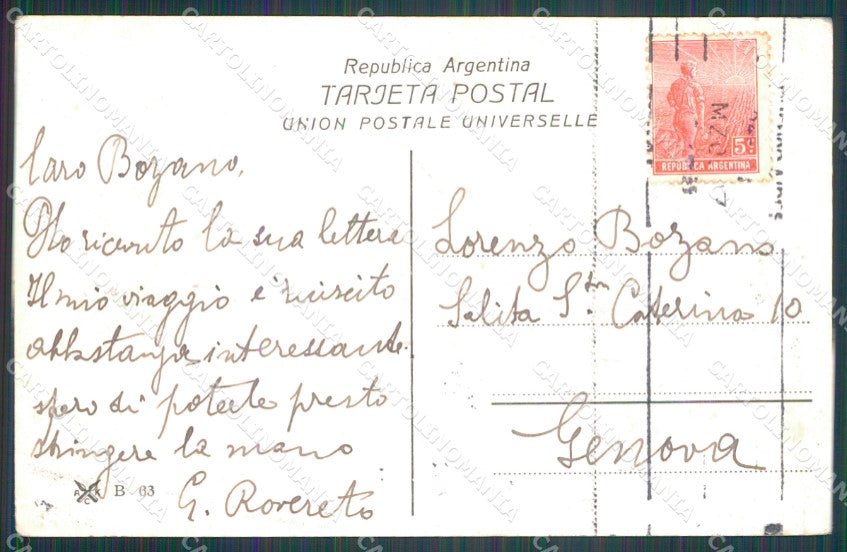 Republica Argentina
TARJETA POSTAL
UNION POSTALE UNIVERSELLE
5 c
REPUBLICA ARGENTINA
MZO
BUENOS AIRES
Caro Bozano,
Ho ricevuto la sua lettera
Il mio viaggio è riuscito
abbstanza interessante.
spero di poterle presto
stringere la mano
G. Rovereto
B 63
Lorenzo Bozano
Salita S.ta Caterina 10
Genova
CARTOLINOMANIA